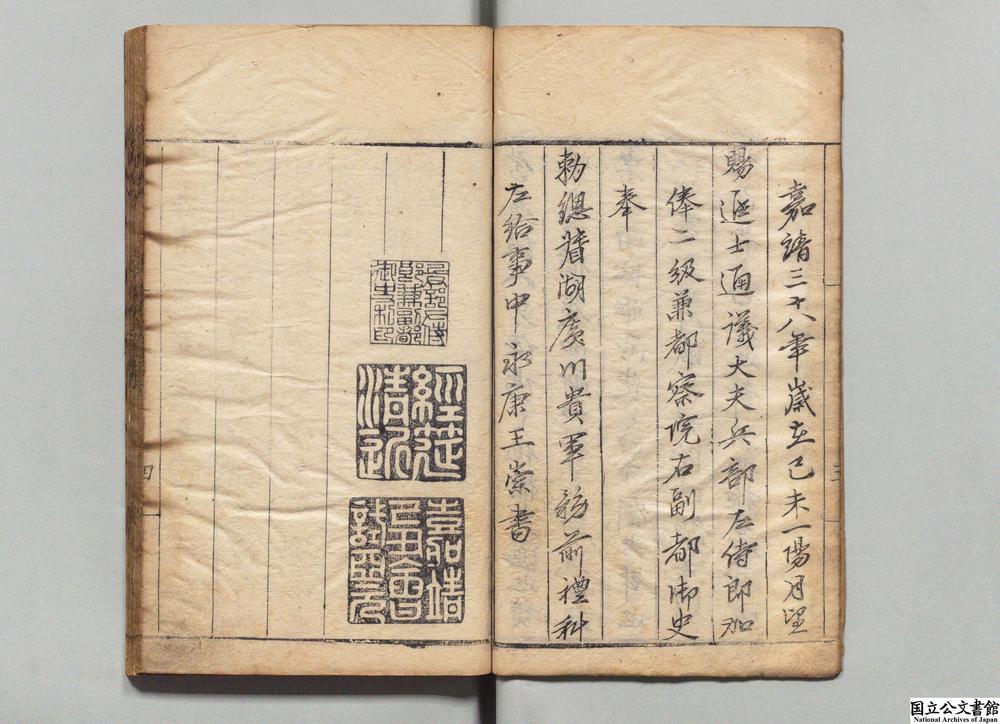 嘉靖三十八年歲在己未一陽月望
賜進士通議大夫兵部左侍郎加
俸二級兼都察院右副都御史
奉
勅總督湖廣川貴軍務前禮科
左給事中永康王崇書
經筵清近
嘉靖己丑會試
三
四
国立公文書館
National Archives of Japan